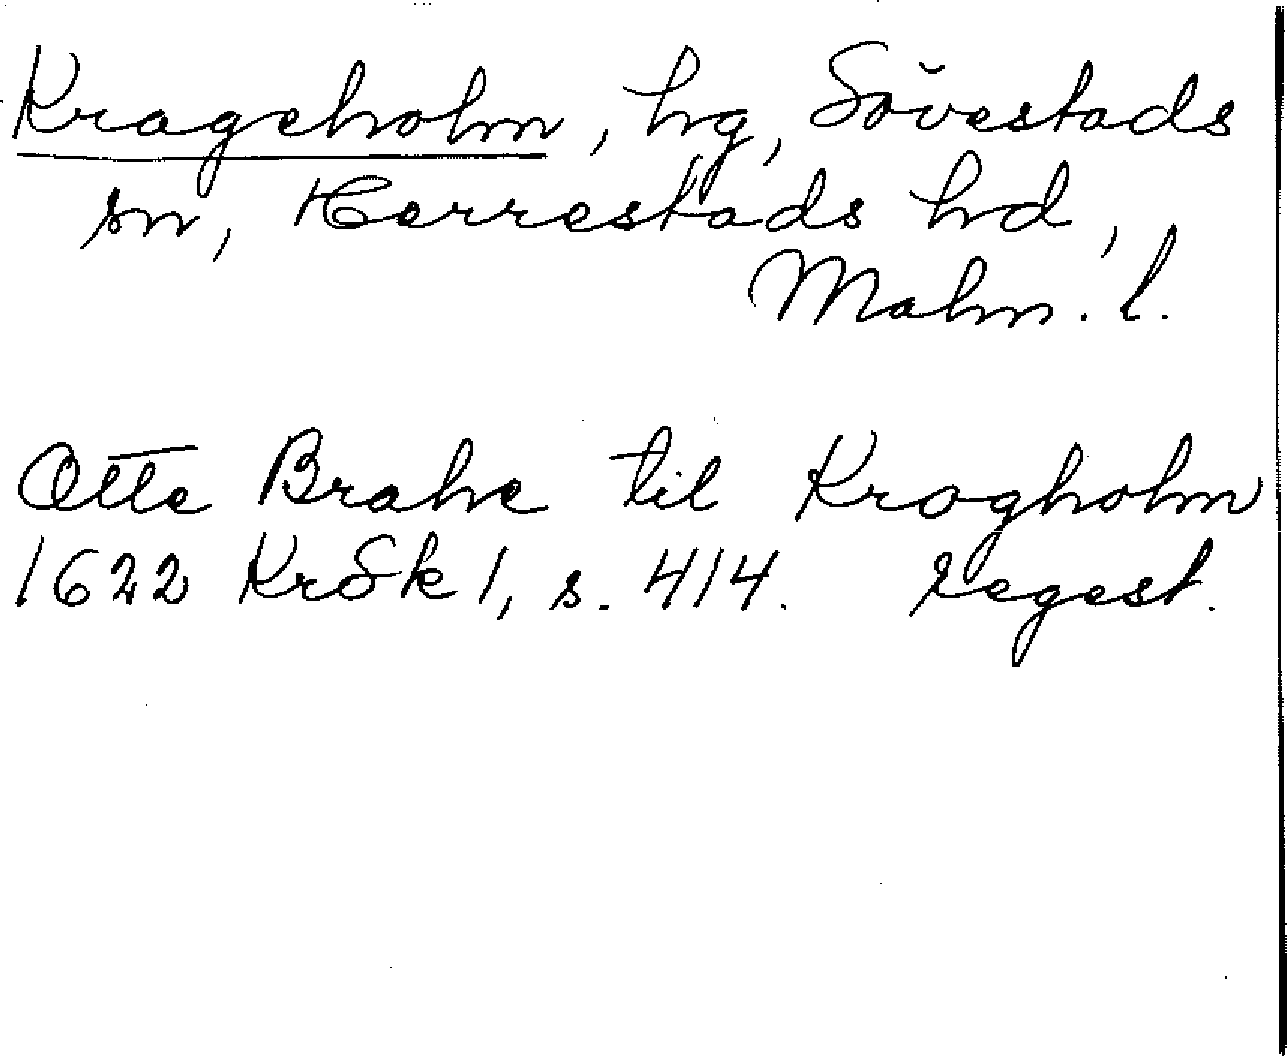 Krageholm, hg, Sövestads
sn, Herrestads hd,
Malm. l.
Otte Brahe til Krogholm
1622 KrSk 1, s. 414. regest.